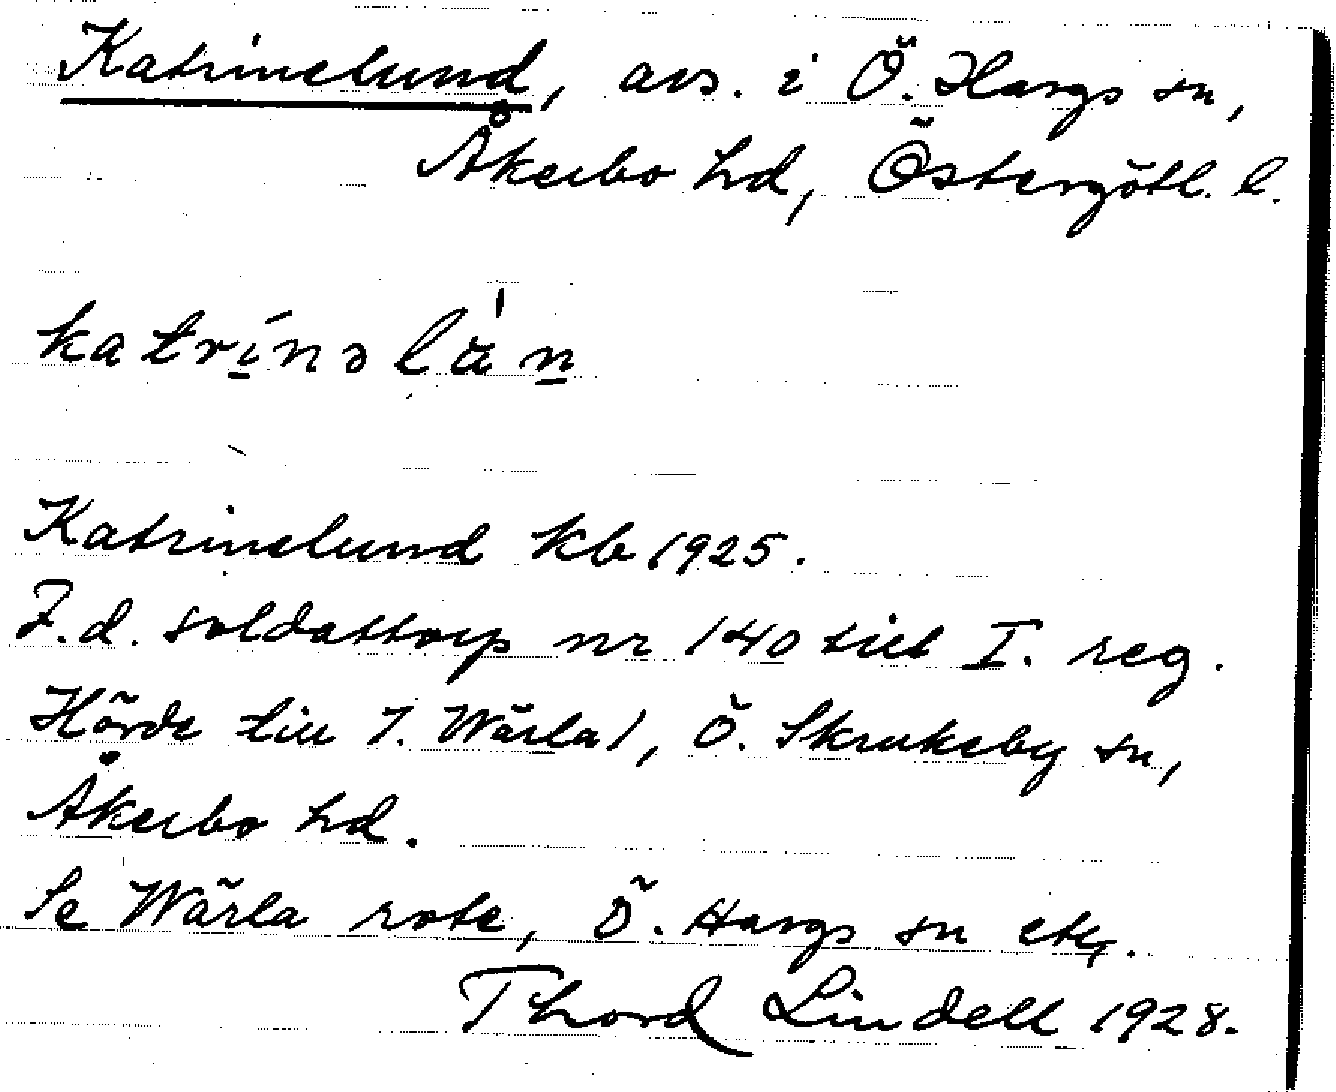 Katrinelund, avs. i Ö. Hargs sn,
Åkerbo hd, Östergötl. l.
katrínəlàn
Katrinelund kb 1925.
F.d. soldattorp nr 140 till I. reg.
Hörde till 7. Wärla), Ö. Skrukeby sn,
Åkerbo hd.
Se Wärla rote, Ö. Hargs sn etc.
Thord Lindell 1928.